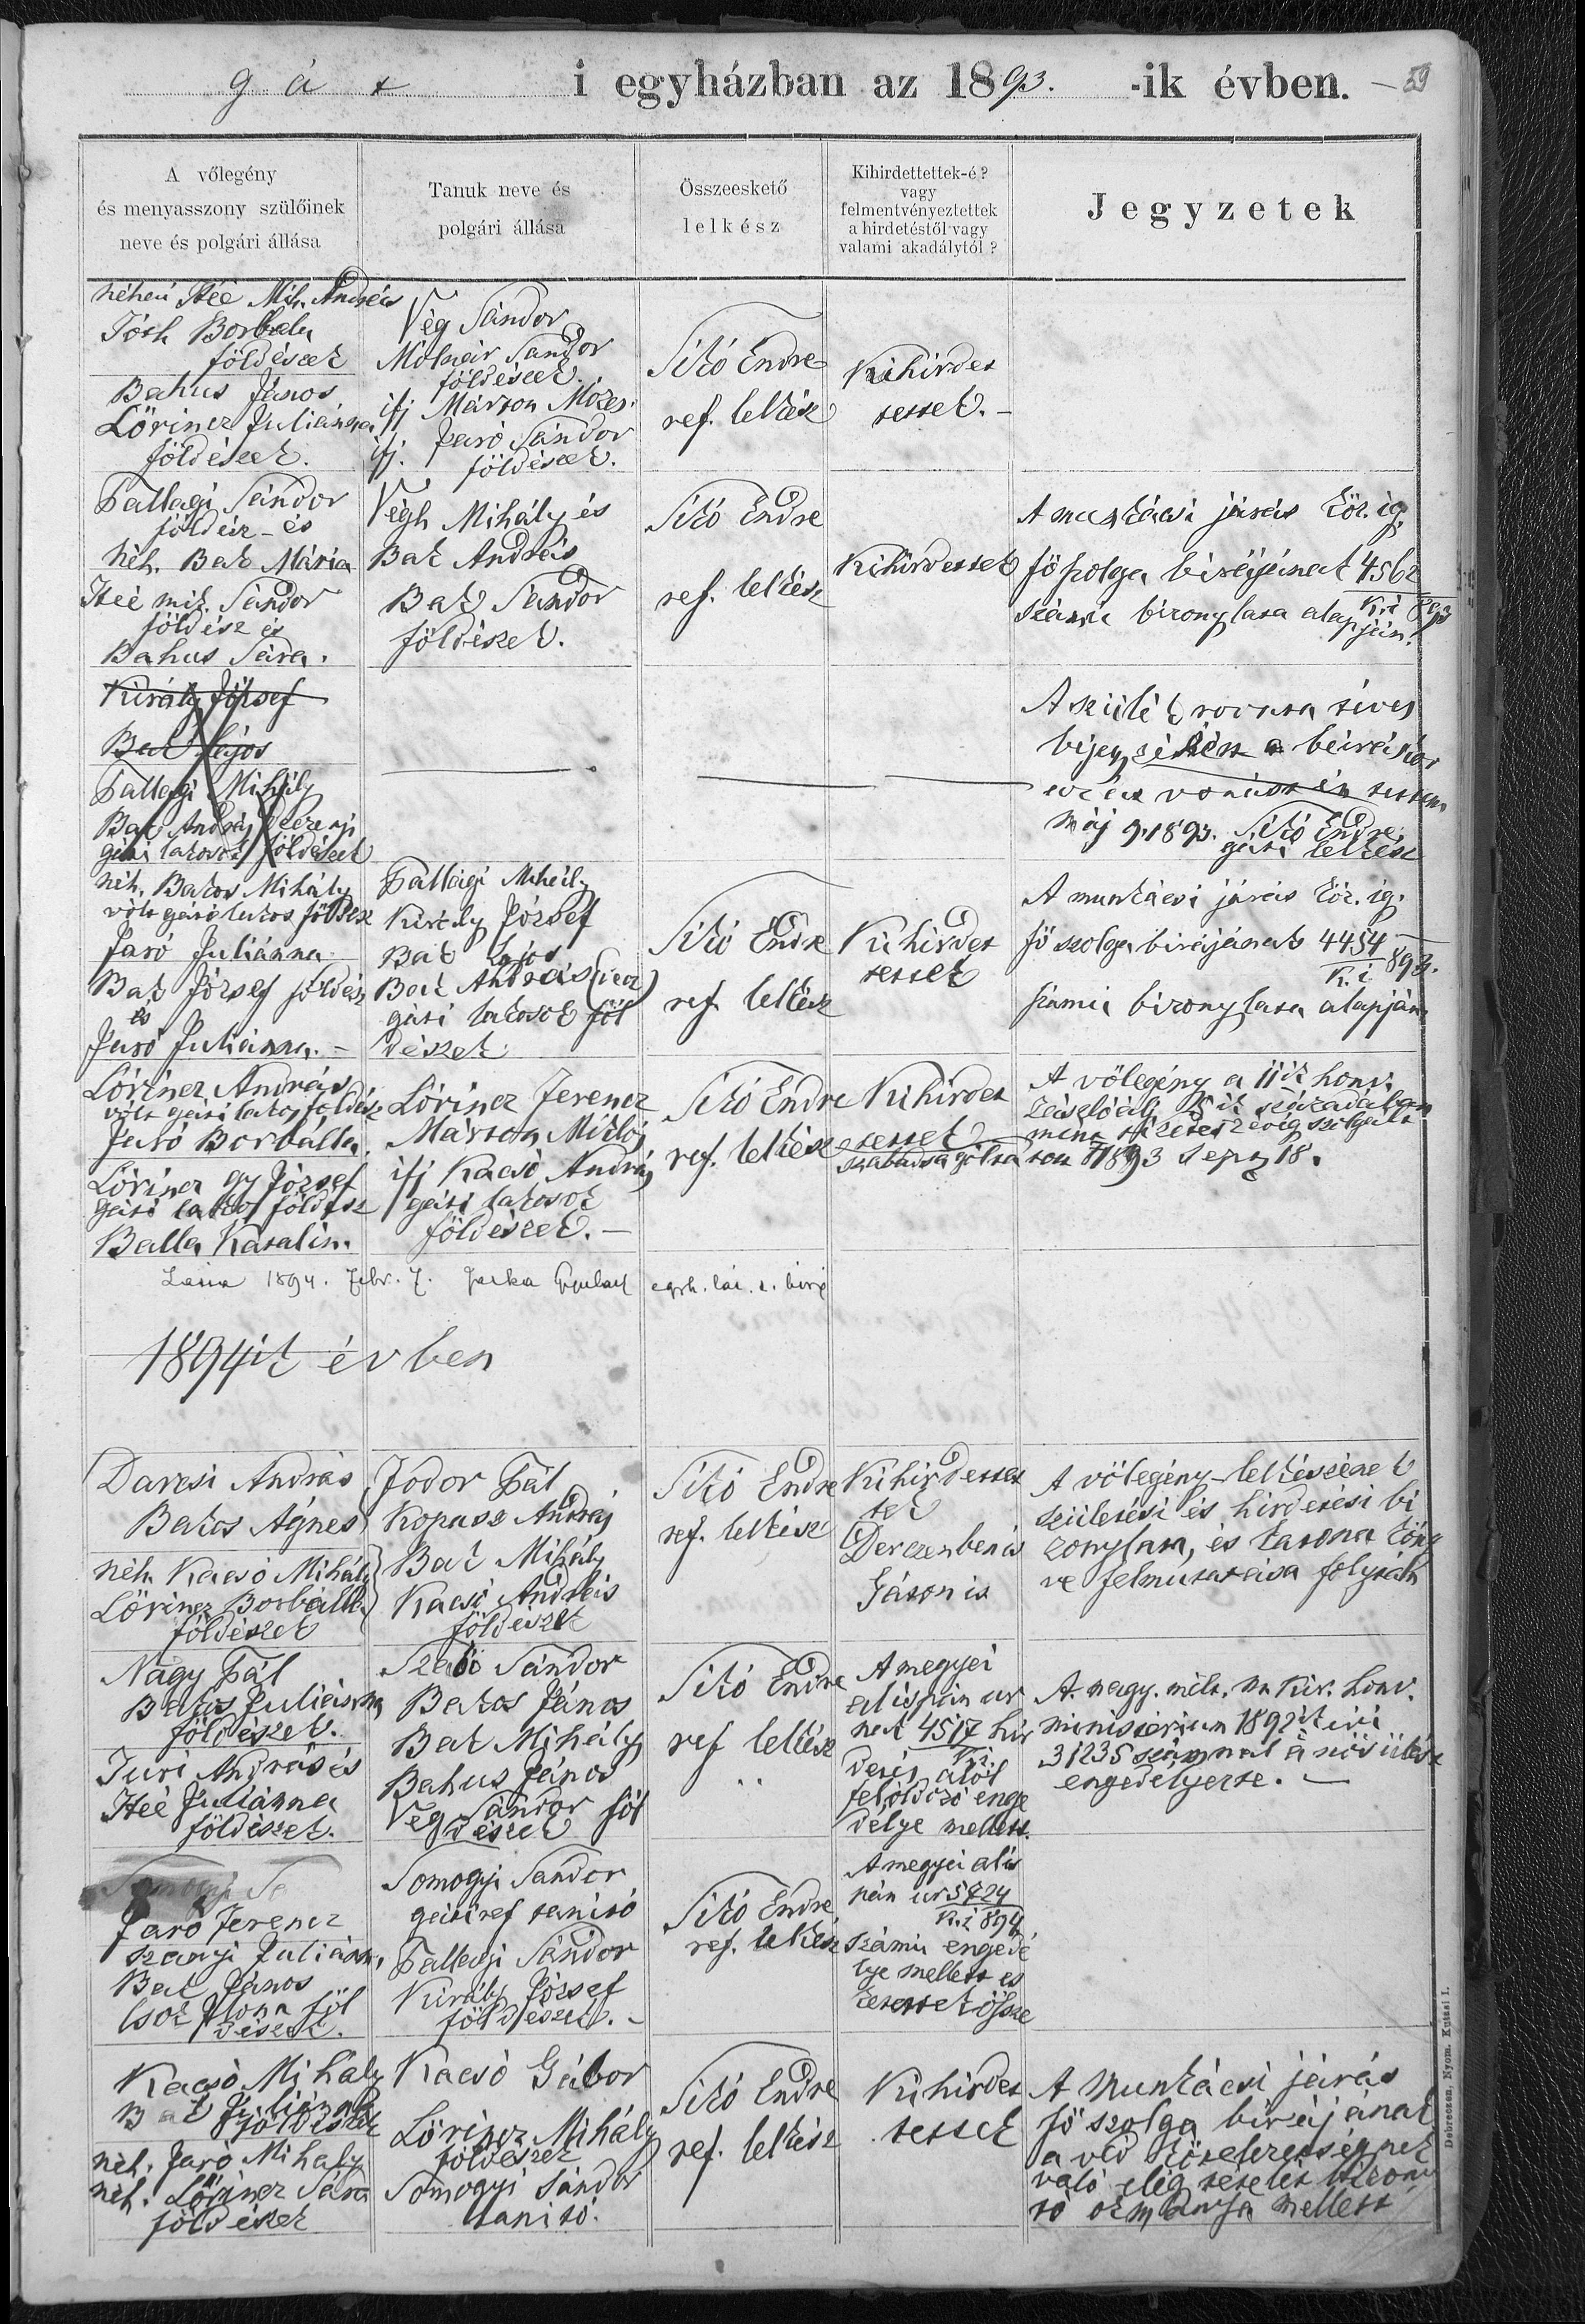 gát i egyházban az 1893. -ik évben. — 59
A vőlegény
és menyasszony szülőinek
neve és polgári állása
Tanuk neve és
polgári állása
Összeeskető
lelkész
Kihirdettettek-é?
vagy
felmentvényeztettek
a hirdetéstől vagy
valami akadálytól?
Jegyzetek
néhai Héé Mih. András
Tóth Borbála
földészek
Bahus János
Lőrincz Juliánna
földészek.
Vég Sándor
Molnár Sándor
földészek.
ifj Márton Mózes
ifj. Jaró Sándor
földészek.
Sikó Endre
ref. lelkész
Kihirdet
tettek. –
Pallagi Sándor
földész – és
néh. Bak Mária
Héé mih. Sándor
földész és
Bahus Sára.
Végh Mihály és
Bak András
Bak Sándor
földészek.
Sikó Endre
ref. lelkész
Kihirdettek
A munkácsi járás köz. ig.
főszolga birájának 4562
K.i 893
számú bizonylata alapján.
Király József
Bak Lajos
Pallagi Mihály
Bak András
gáti lakosok földészek
A szülék rovata téves
május 9. 1893. Sikó Endre
gáti lelkész
néh. Bakos Mihály
volt gáti lakos földész
Jaró Juliánna
Bak József földész
és
Jaró Juliánna. –
Pallagi Mihály
Király József
Bak Lajos
Bak András
gáti lakosok föl
dészek
Sikó Endre
ref. lelkész
Kihirdet
tettek
A munkácsi járás köz. ig.
fő szolga birájának 4454
K.i 893.
számú bizonylata alapján
Lőrincz András
volt gáti lakos földész
Jaró Borbálla.
Lőrincz Gy József
gáti lakos földész
Balla Katalin.
Lőrincz Ferencz
Márton Miklós
ifj Kacsó András
gáti lakosok
földészek. –
Sikó Endre
ref. lelkész
Kihirdet
tettek
A vőlegény a 11ik honv.
zászlóalj századában
szabadságoltatott 1893 Sept 18.
Látta 1894. Febr. 7. Jarka Gyulay egyh.
1894ik évben
Darcsi András
Bakos Ágnes
néh. Kacsó Mihály
Lőrincz Borbálla
földészek
Fodor Pál
Kopasz András
Bak Mihály
Kacsó András
földészek
Sikó Endre
ref. lelkész
Kihirdettet
tek
Derczenben is
Gáton is
A vőlegény lelkészének
születési és hirdetési bi
zonylata, és katona köny
ve felmutatása folytán
Nagy Pál
Bakos Juliánna
földészek.
Turi András és
Héé Juliánna
földészek.
Szabó Sándor
Bakos János
Bak Mihály
Bahus János
Vég Sándor föl
dészek
Sikó Endre
ref lelkész
A megyei
alispán ur
nak 4517 hir
K.i
detés alól
feloldozó enge
délye mellett.
A. nagy. mélt. m. kir. honv.
ministerium 1892ik évi
31235 számmal a nősülést
engedélyezte. –
Jaró Ferencz
Szanyi Juliánna
Bak János
Csok Ilona föl
dészek.
Somogyi Sandor
gáti ref tanitó
Pallagi Sándor
Király József
földészek. –
Sikó Endre
ref. lelkész
A megyei alis
pán ur 5724
K.i 894
számú engedé
lye mellett es
kettettek össze
Kacsó Mihály
Bak Juliánna
földészek
néh. Jaró Mihaly
néh. Lőrincz Sára
földészek
Kacsó Gábor
Lőrincz Mihály
földészek
Somogyi Sándor
tanitó.
Sikó Endre
ref. lelkész
Kihirdet
tettek
A Munkácsi járás
fő szolga birájának
a véd kötelezettségnek
való elég tételét bizonyi
tó okmánya mellett
Debreczen, Nyom. Kutasi I.